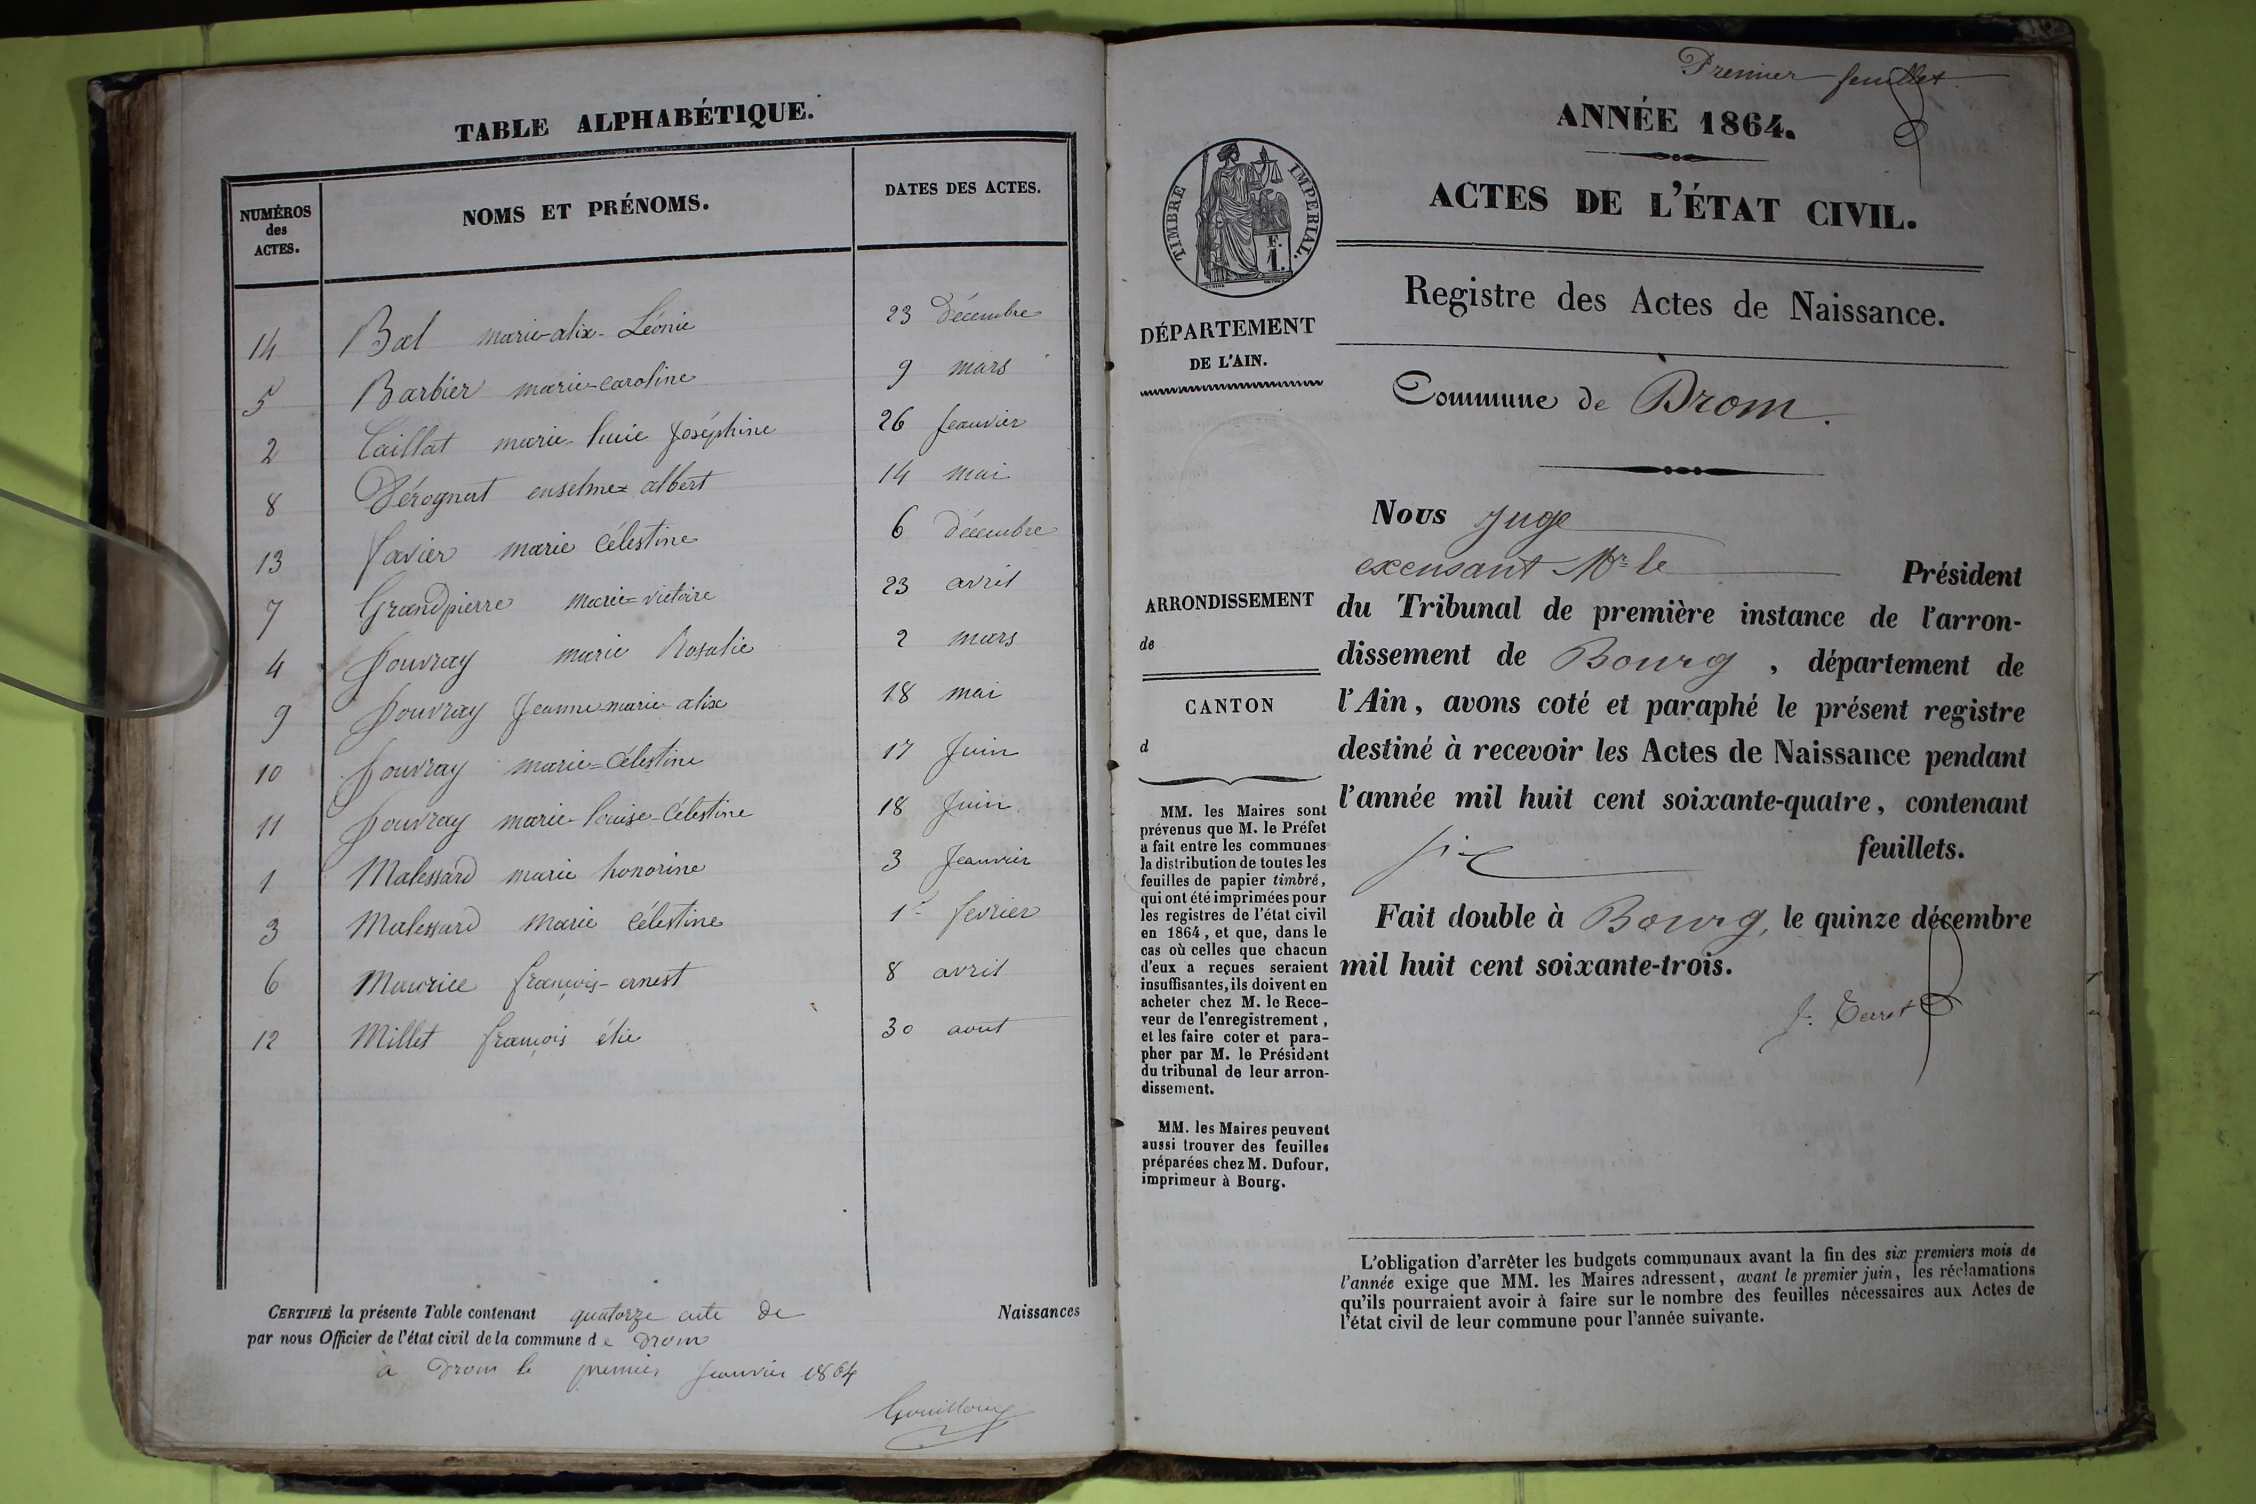 TABLE ALPHABÉTIQUE.
NUMÉROS des ACTES.
NOMS ET PRÉNOMS.
DATES DES ACTES.
14 Bal marie-alix-Léonie 23 Décembre
5 Barbier marie-caroline 9 mars
2 Caillat marie-lucie Joséphine 26 Jeanvier
8 Dérognat enselme=albert 14 mai
13 Favier marie célestine 6 Décembre
7 Grandpierre marie=victoire 23 avril
4 Jouvray marie Rosalie 2 mars
9 Jouvray Jeanne-marie-alix 18 mai
10 Jouvray marie=Célestine 17 Juin
11 Jouvray marie-louise-Célestine 18 Juin
1 Malessard marie honorine 3 Jeanvier
3 Malessard marie célestine 1er fevrier
6 Maurice françois-ernest 8 avril
12 Millet françois élie 30 aout
CERTIFIÉ la présente Table contenant quatorze acte de Naissances
par nous Officier de l'état civil de la commune de Drom
à Drom le premier Jeanvier 1864
Premier feuillet
ANNÉE 1864.
ACTES DE L'ÉTAT CIVIL.
TIMBRE IMPÉRIAL.
F. 1.
Registre des Actes de Naissance.
DÉPARTEMENT
DE L'AIN.
Commune de Drom.
Nous Juge
excusant Mr le Président
ARRONDISSEMENT
de
CANTON
d
du Tribunal de première instance de l'arron-
dissement de Bourg, département de
l'Ain, avons coté et paraphé le présent registre
destiné à recevoir les Actes de Naissance pendant
l'année mil huit cent soixante-quatre, contenant
six feuillets.
Fait double à Bourg, le quinze décembre
mil huit cent soixante-trois.
MM. les Maires sont
prévenus que M. le Préfet
a fait entre les communes
la distribution de toutes les
feuilles de papier timbré,
qui ont été imprimées pour
les registres de l'état civil
en 1864, et que, dans le
cas où celles que chacun
d'eux a reçues seraient
insuffisantes, ils doivent en
acheter chez M. le Rece-
veur de l'enregistrement,
et les faire coter et para-
pher par M. le Président
du tribunal de leur arron-
dissement.
MM. les Maires peuvent
aussi trouver des feuilles
préparées chez M. Dufour,
imprimeur à Bourg.
L'obligation d'arrêter les budgets communaux avant la fin des six premiers mois de
l'année exige que MM. les Maires adressent, avant le premier juin, les réclamations
qu'ils pourraient avoir à faire sur le nombre des feuilles nécessaires aux Actes de
l'état civil de leur commune pour l'année suivante.